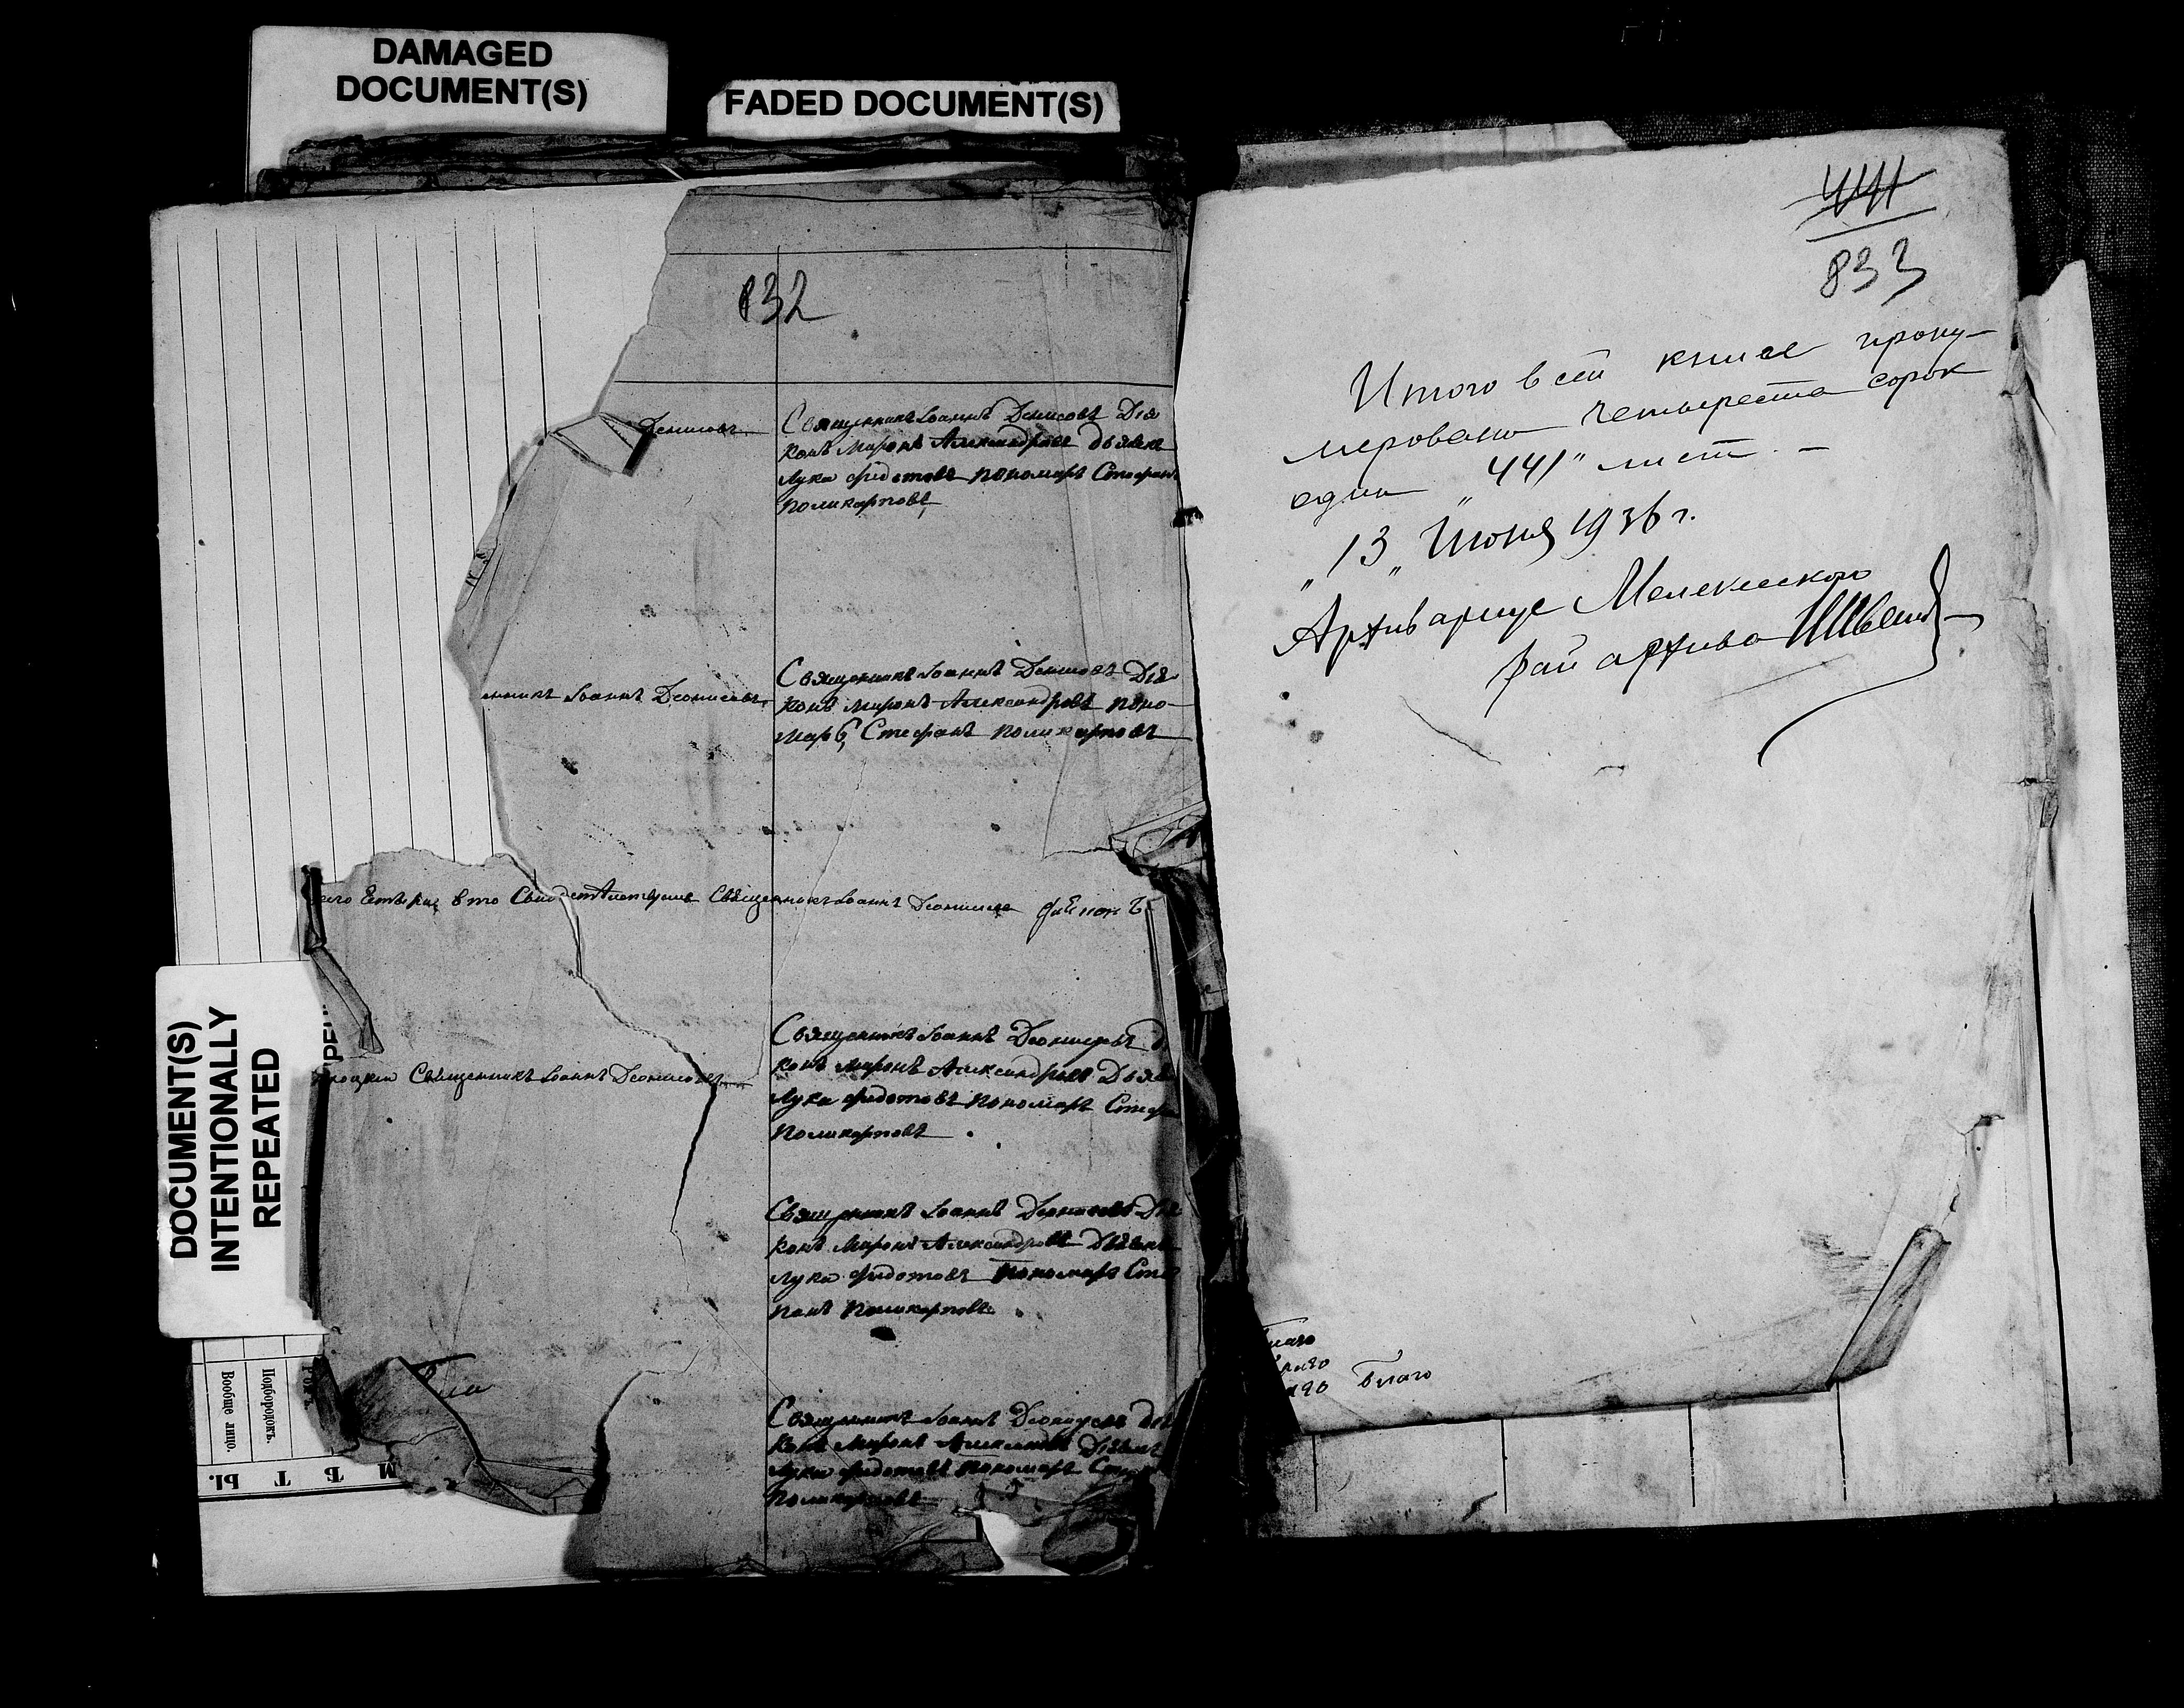 DAMAGED
DOCUMENT(S)
FADED DOCUMENT(S)
832
Денисовъ
Священникъ Іоаннъ Денисовъ Дія
конъ Миронъ Александровъ дьячекъ
Лука Федотовъ пономарь Стефанъ
поликарповъ
Священникъ Іоаннъ Денисовъ Дія
енникъ Іоаннъ Деонисовъ
конъ Миронъ Александровъ поно
марь Стефанъ поликарповъ
Священникъ Іоаннъ Деонисовъ
Священникъ Іоаннъ Деонисовъ д
конъ Миронъ Александровъ Дьяч
Священникъ Іоаннъ Деонисовъ
Лука Федотовъ пономарь Стефа
поликарповъ
Священникъ Іоаннъ Деонисовъ Дія
конъ Миронъ Александровъ Дьячекъ
Лука Федотовъ пономарь Сте
панъ поликарповъ
Священникъ Іоаннъ Деонисовъ дія
конъ Миронъ Дьячекъ
Лука Федотовъ пономарь
поликарповъ
DOCUMENT(S)
INTENTIONALLY
REPEATED
Подбородокъ.
Вообще лицо.
М Ѣ Т Ы.
441
833
Итого в сей книге прону-
меровано четыреста сорок
один "441" лист. –
"13" Июня 1936 г.
Архивариус Мелекесского
рай архива
благо